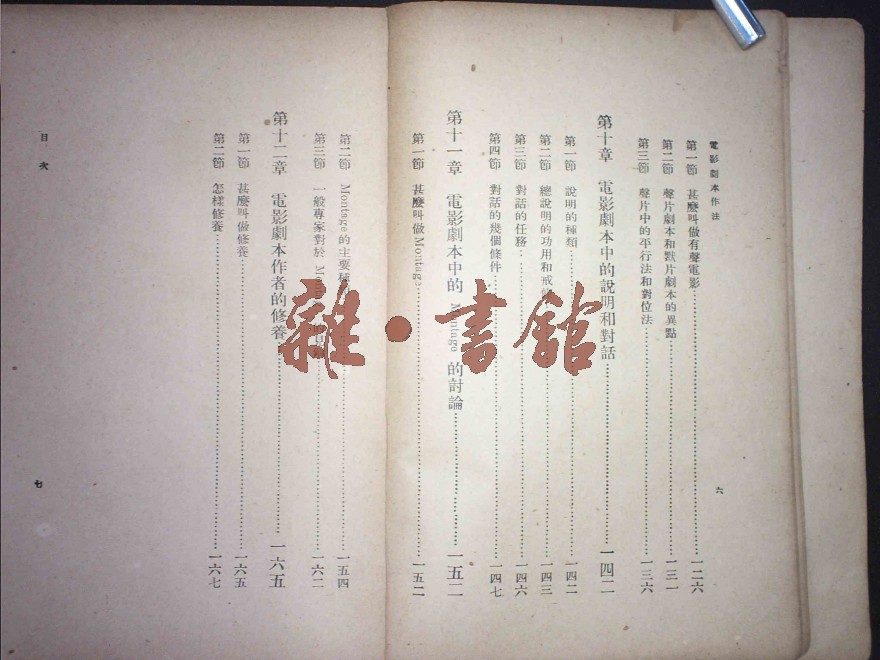 電影劇本作法
第一節 甚麼叫做有聲電影……一二六
第二節 聲片劇本和默片劇本的異點……一三一
第三節 聲片中的平行法和對位法……一三六
第十章 電影劇本中的說明和對話……一四二
第一節 說明的種類……一四二
第二節 總說明的功用和戒……一四三
第三節 對話的任務……一四六
第四節 對話的幾個條件……一四七
第十一章 電影劇本中的 Montage 的討論……一五二
第一節 甚麼叫做Montage……一五二
六
第二節 Montage的主要種……一五四
第三節 一般專家對於 Mon……一六二
第十二章 電影劇本作者的修養……一六五
第一節 甚麼叫做修養……一六五
第二節 怎樣修養……一六七
目次
七
雜·書館